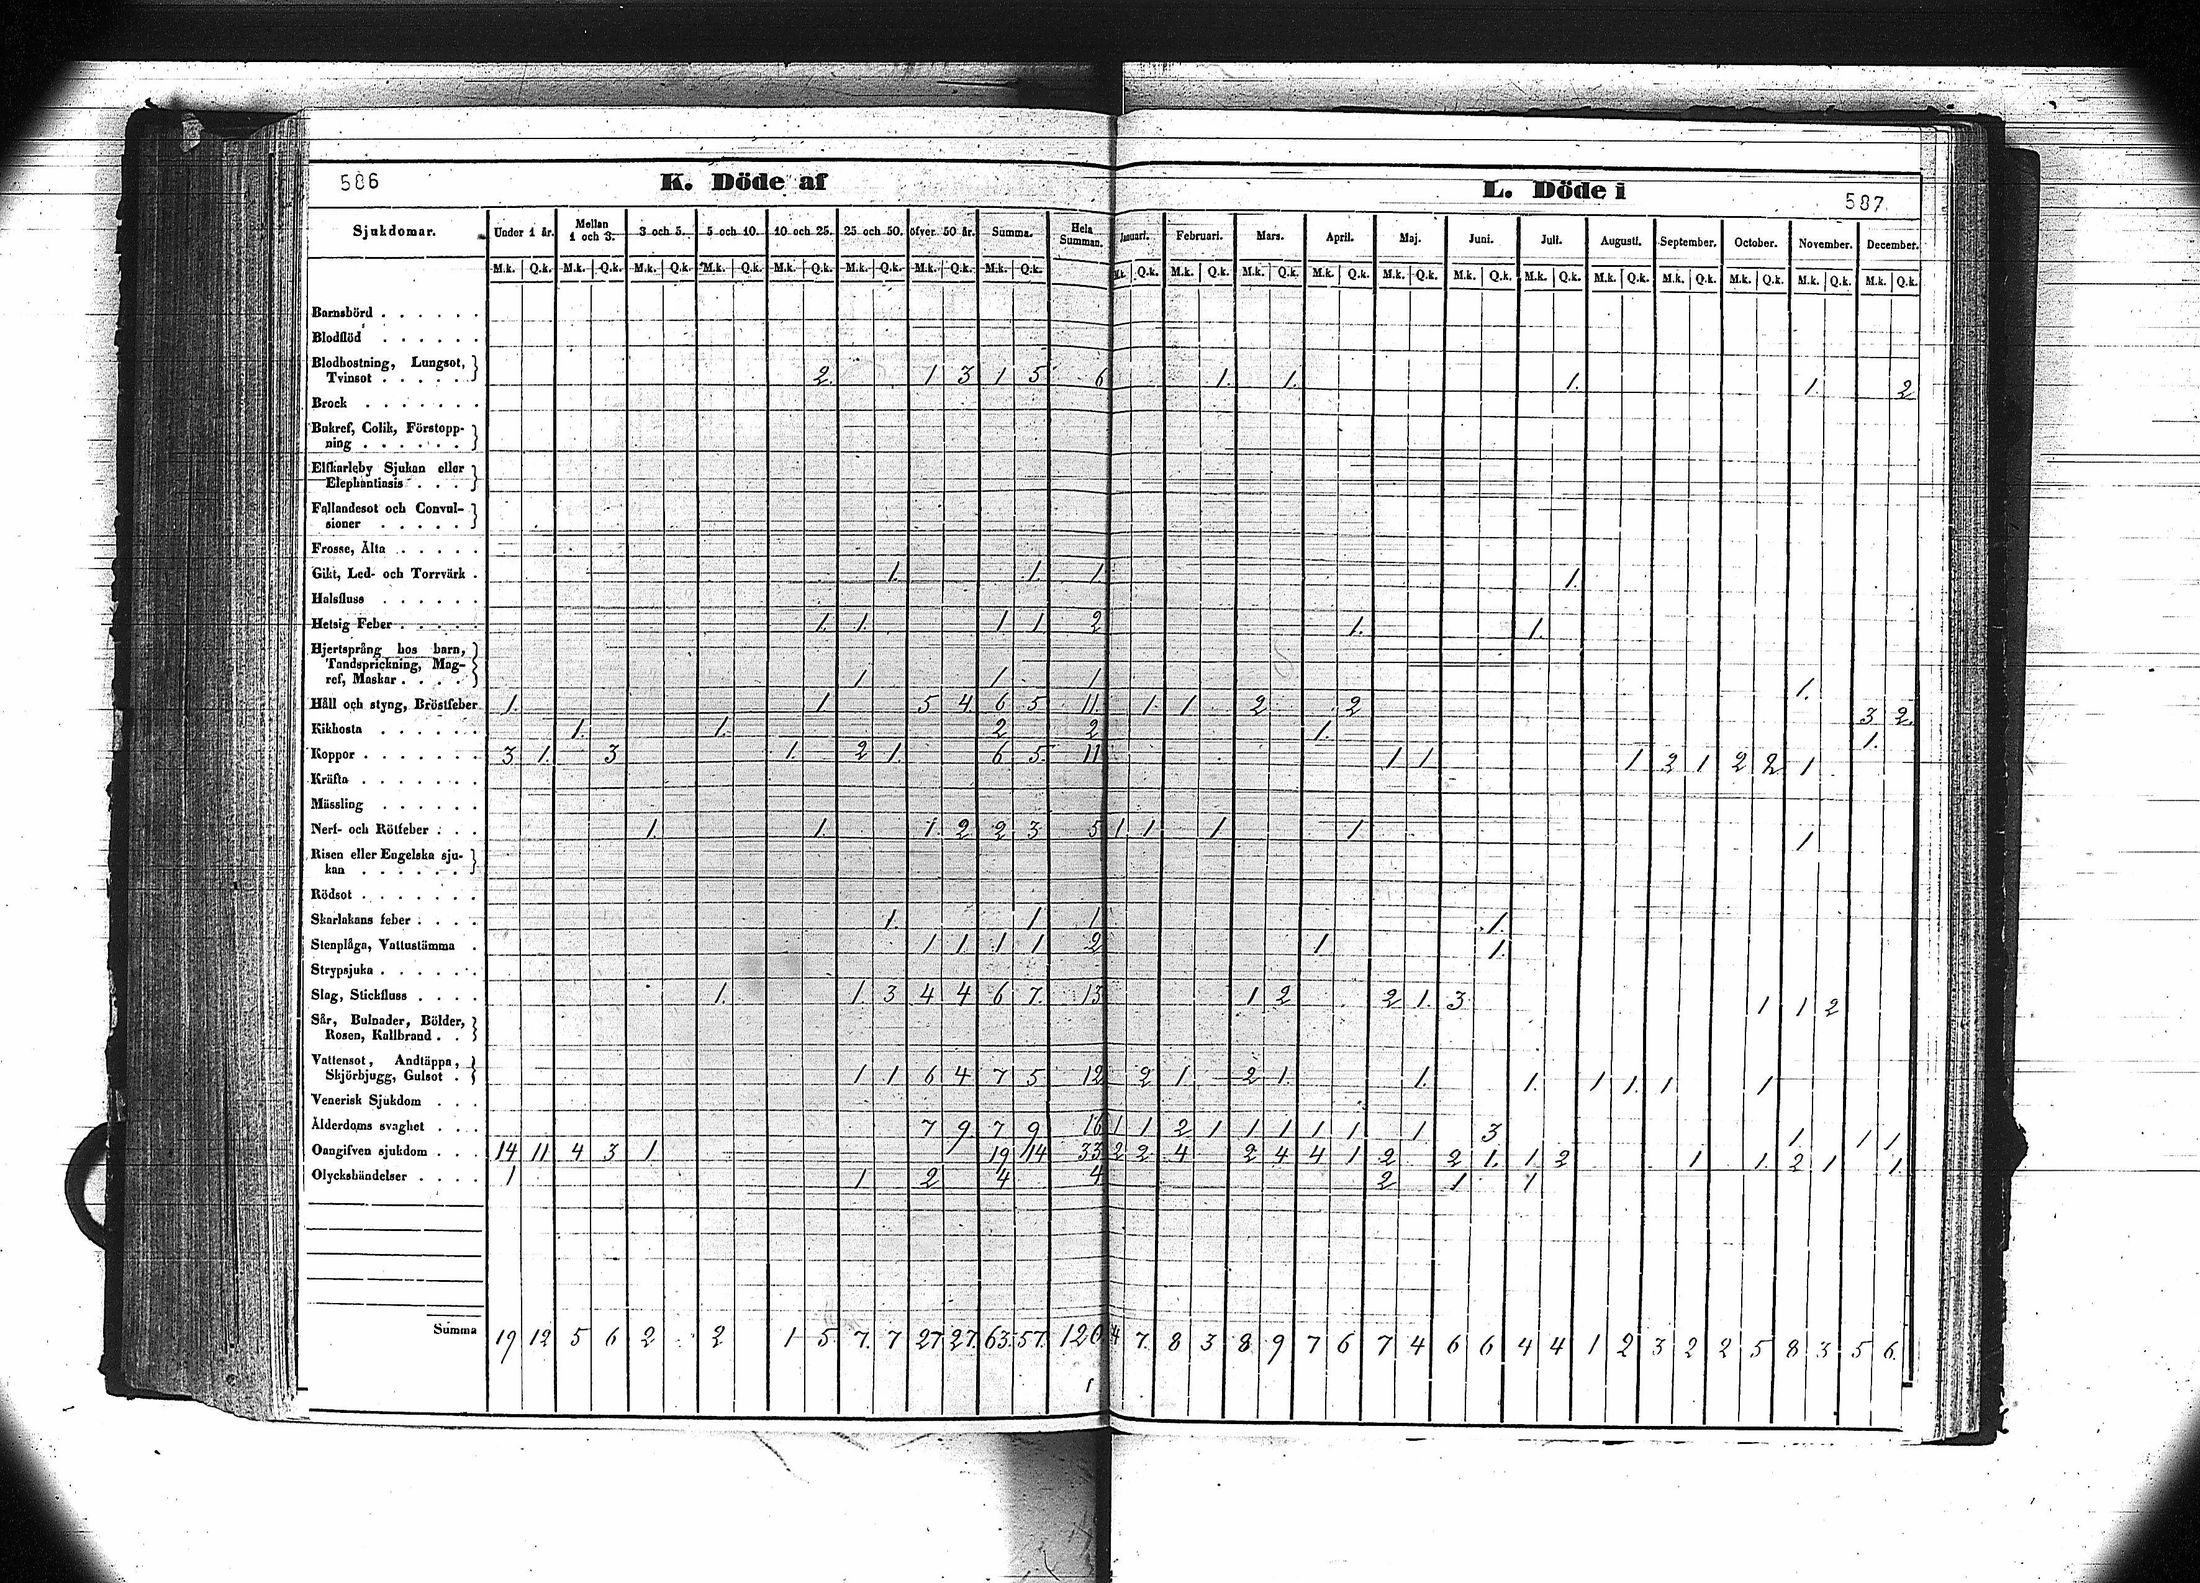 586
K. Döde af
L. Döde i
587.
Sjukdomar. Under 1 år. Mellan 1 och 3. 3 och 5. 5 och 10. 10 och 25. 25 och 50. öfver 50 år. Summa. Hela Summan. Januari. Februari. Mars. April. Maj. Juni. Juli. Augusti. September. October. November. December.
M.k. Q.k. M.k. Q.k. M.k. Q.k. M.k. Q.k. M.k. Q.k. M.k. Q.k. M.k. Q.k. M.k. Q.k. M.k. Q.k. M.k. Q.k. M.k. Q.k. M.k. Q.k. M.k. Q.k. M.k. Q.k. M.k. Q.k. M.k. Q.k. M.k. Q.k. M.k. Q.k. M.k. Q.k. M.k. Q.k.
Barnsbörd . . . . . .
Blodflöd . . . . . .
Blodhostning, Lungsot,
Tvinsot . . . . . 2. 1 3 1 5 6 1. 1. 1. 1. 2
Brock . . . . . . .
Bukref, Colik, Förstopp-
ning . . . . . .
Elfkarleby Sjukan eller
Elephantiasis . . .
Fallandesot och Convul-
sioner . . . . .
Frosse, Älta . . . . .
Gikt, Led- och Torrvärk . 1. 1. 1. 1.
Halsfluss . . . . . .
Hetsig Feber . . . . . 1. 1. 1 1 2 1. 1.
Hjertsprång hos barn,
Tandsprickning, Mag-
ref, Maskar . . . . 1 1 1 1.
Håll och styng, Bröstfeber 1. 1 5 4 6 5 11. 1. 1 2 2 3 2.
Kikhosta . . . . . . 1. 1. 2 2 1. 1.
Koppor . . . . . . . 3 1. 3 1. 2 1. 6 5. 11 1 1 1 2 1 2 2 1
Kräfta . . . . . . .
Mässling . . . . . .
Nerf- och Rötfeber . . . 1. 1. 1. 2 2 3 5 1 1 1. 1 1
Risen eller Engelska sju-
kan . . . . . .
Rödsot . . . . . . .
Skarlakans feber . . . . 1. 1 1 1.
Stenplåga, Vattustämma . 1 1. 1 1 2 1 1.
Strypsjuka . . . . . .
Slag, Stickfluss . . . . 1. 1. 3 4 4 6 7. 13 1 2 2 1. 3 1 1 2
Sår, Bulnader, Bölder,
Rosen, Kallbrand . .
Vattensot, Andtäppa,
Skjörbjugg, Gulsot . 1 1 6 4 7 5 12 2 1. 2 1. 1. 1. 1 1. 1 1
Venerisk Sjukdom . . .
Ålderdoms svaghet . . . 7 9. 7 9 16 1 1 2 1 1 1 1 1 1 3 1 1 1
Oangifven sjukdom . . . 14 11 4 3 1 1 19 14 33 2 2 4 2 4 4 1 2 2 1. 1 2 1 1. 2 1 1.
Olyckshändelser . . . . 1 1 2 4 4 2 1 1
Summa 19 12 5 6 2 2 1 5. 7. 7 27 27. 63. 57. 120 4 7. 8 3 8 9 7 6 7 4 6 6 4 4 1 2 3 2 2 5 8 3 5 6.